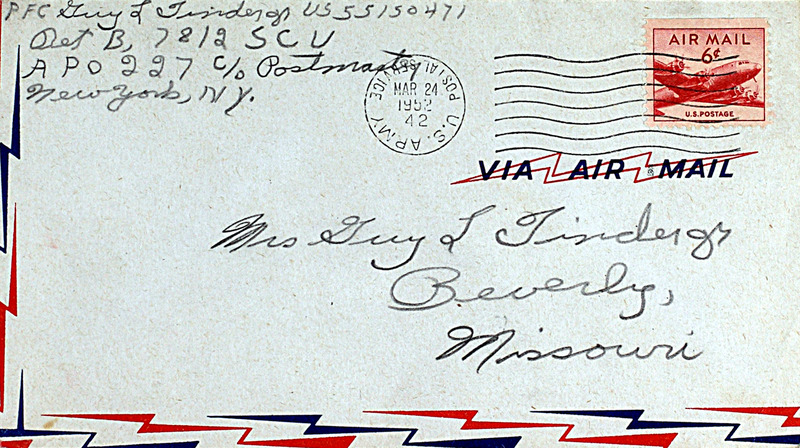 PFC Guy L Tinder Jr US55150471
Det B, 7812 SCU
APO 227 c/o Postmaster
New York, N.Y.
U.S. ARMY POSTAL SERVICE
MAR 24
1952
42
AIR MAIL
6¢
U.S. POSTAGE
VIA AIR MAIL
Mrs Guy L Tinder Jr
Beverly,
Missouri